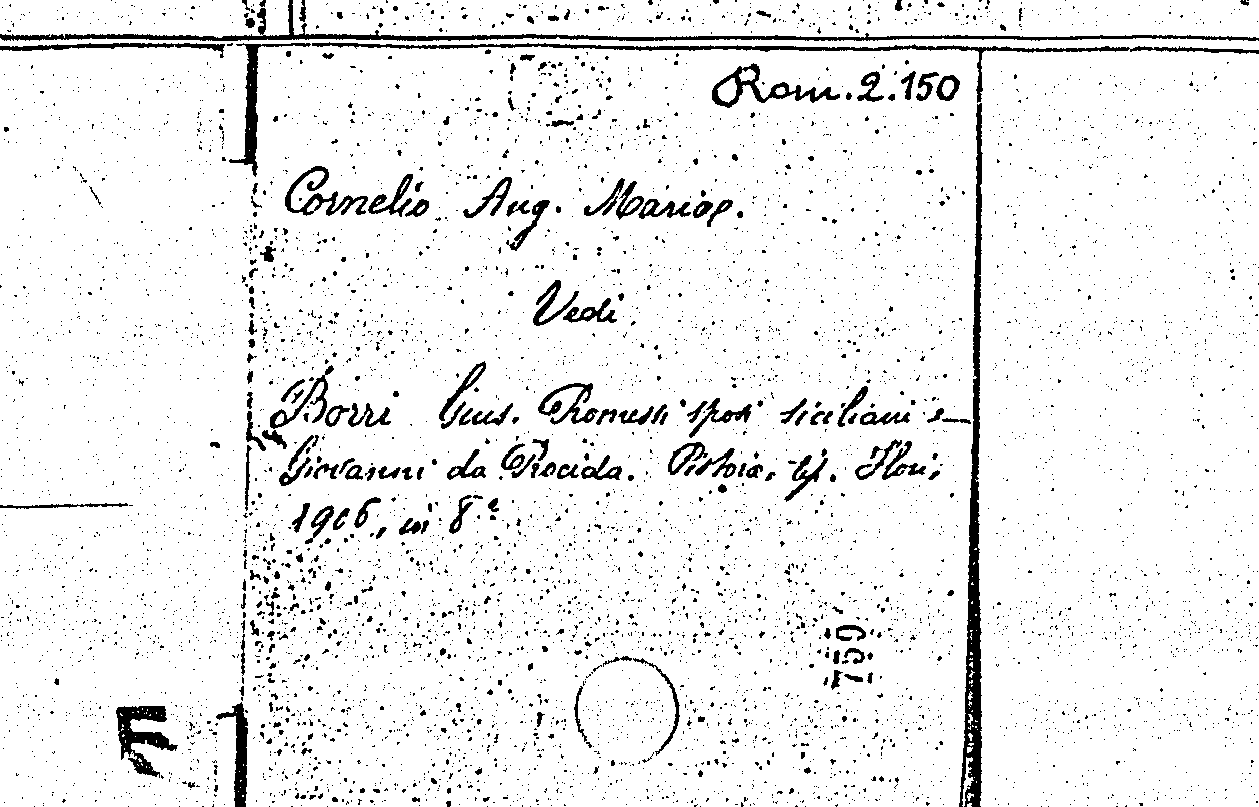 Rom. 2. 150
Cornelio Aug. Mariae.
Vedi
Borri Gius. Promessi sposi siciliani e
Giovanni da Procida. Pistoia, tip. Flori,
1906, in 8°
759
F